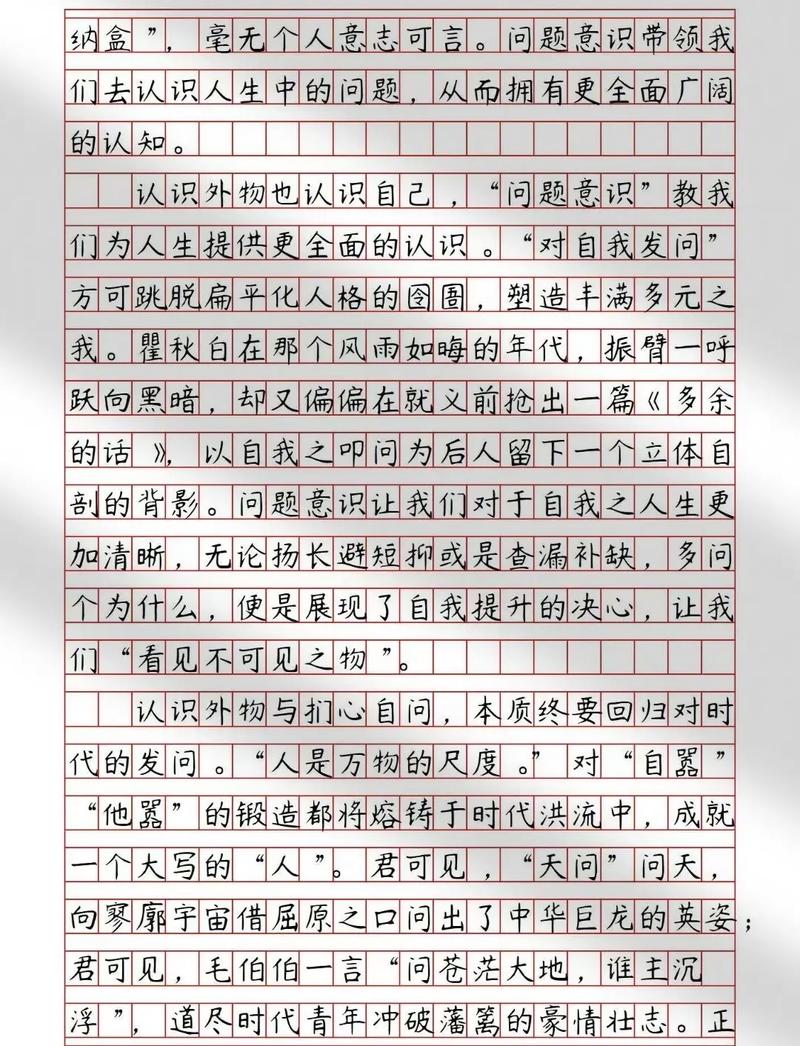 纳盒”，毫无个人意志可言。问题意识带领我
们去认识人生中的问题，从而拥有更全面广阔
的认知。
认识外物也认识自己，“问题意识”教我
们为人生提供更全面的认识。“对自我发问”
方可跳脱扁平化人格的囹圄，塑造丰满多元之
我。瞿秋白在那个风雨如晦的年代，振臂一呼
跃向黑暗，却又偏偏在就义前抢出一篇《多余
的话》，以自我之叩问为后人留下一个立体自
剖的背影。问题意识让我们对于自我之人生更
加清晰，无论扬长避短抑或是查漏补缺，多问
个为什么，便是展现了自我提升的决心，让我
们“看见不可见之物”。
认识外物与扪心自问，本质终要回归对时
代的发问。“人是万物的尺度。”对“自嚣”
“他嚣”的锻造都将熔铸于时代洪流中，成就
一个大写的“人”。君可见，“天问”问天，
向寥廓宇宙借屈原之口问出了中华巨龙的英姿；
君可见，毛伯伯一言“问苍茫大地，谁主沉
浮”，道尽时代青年冲破藩篱的豪情壮志。正